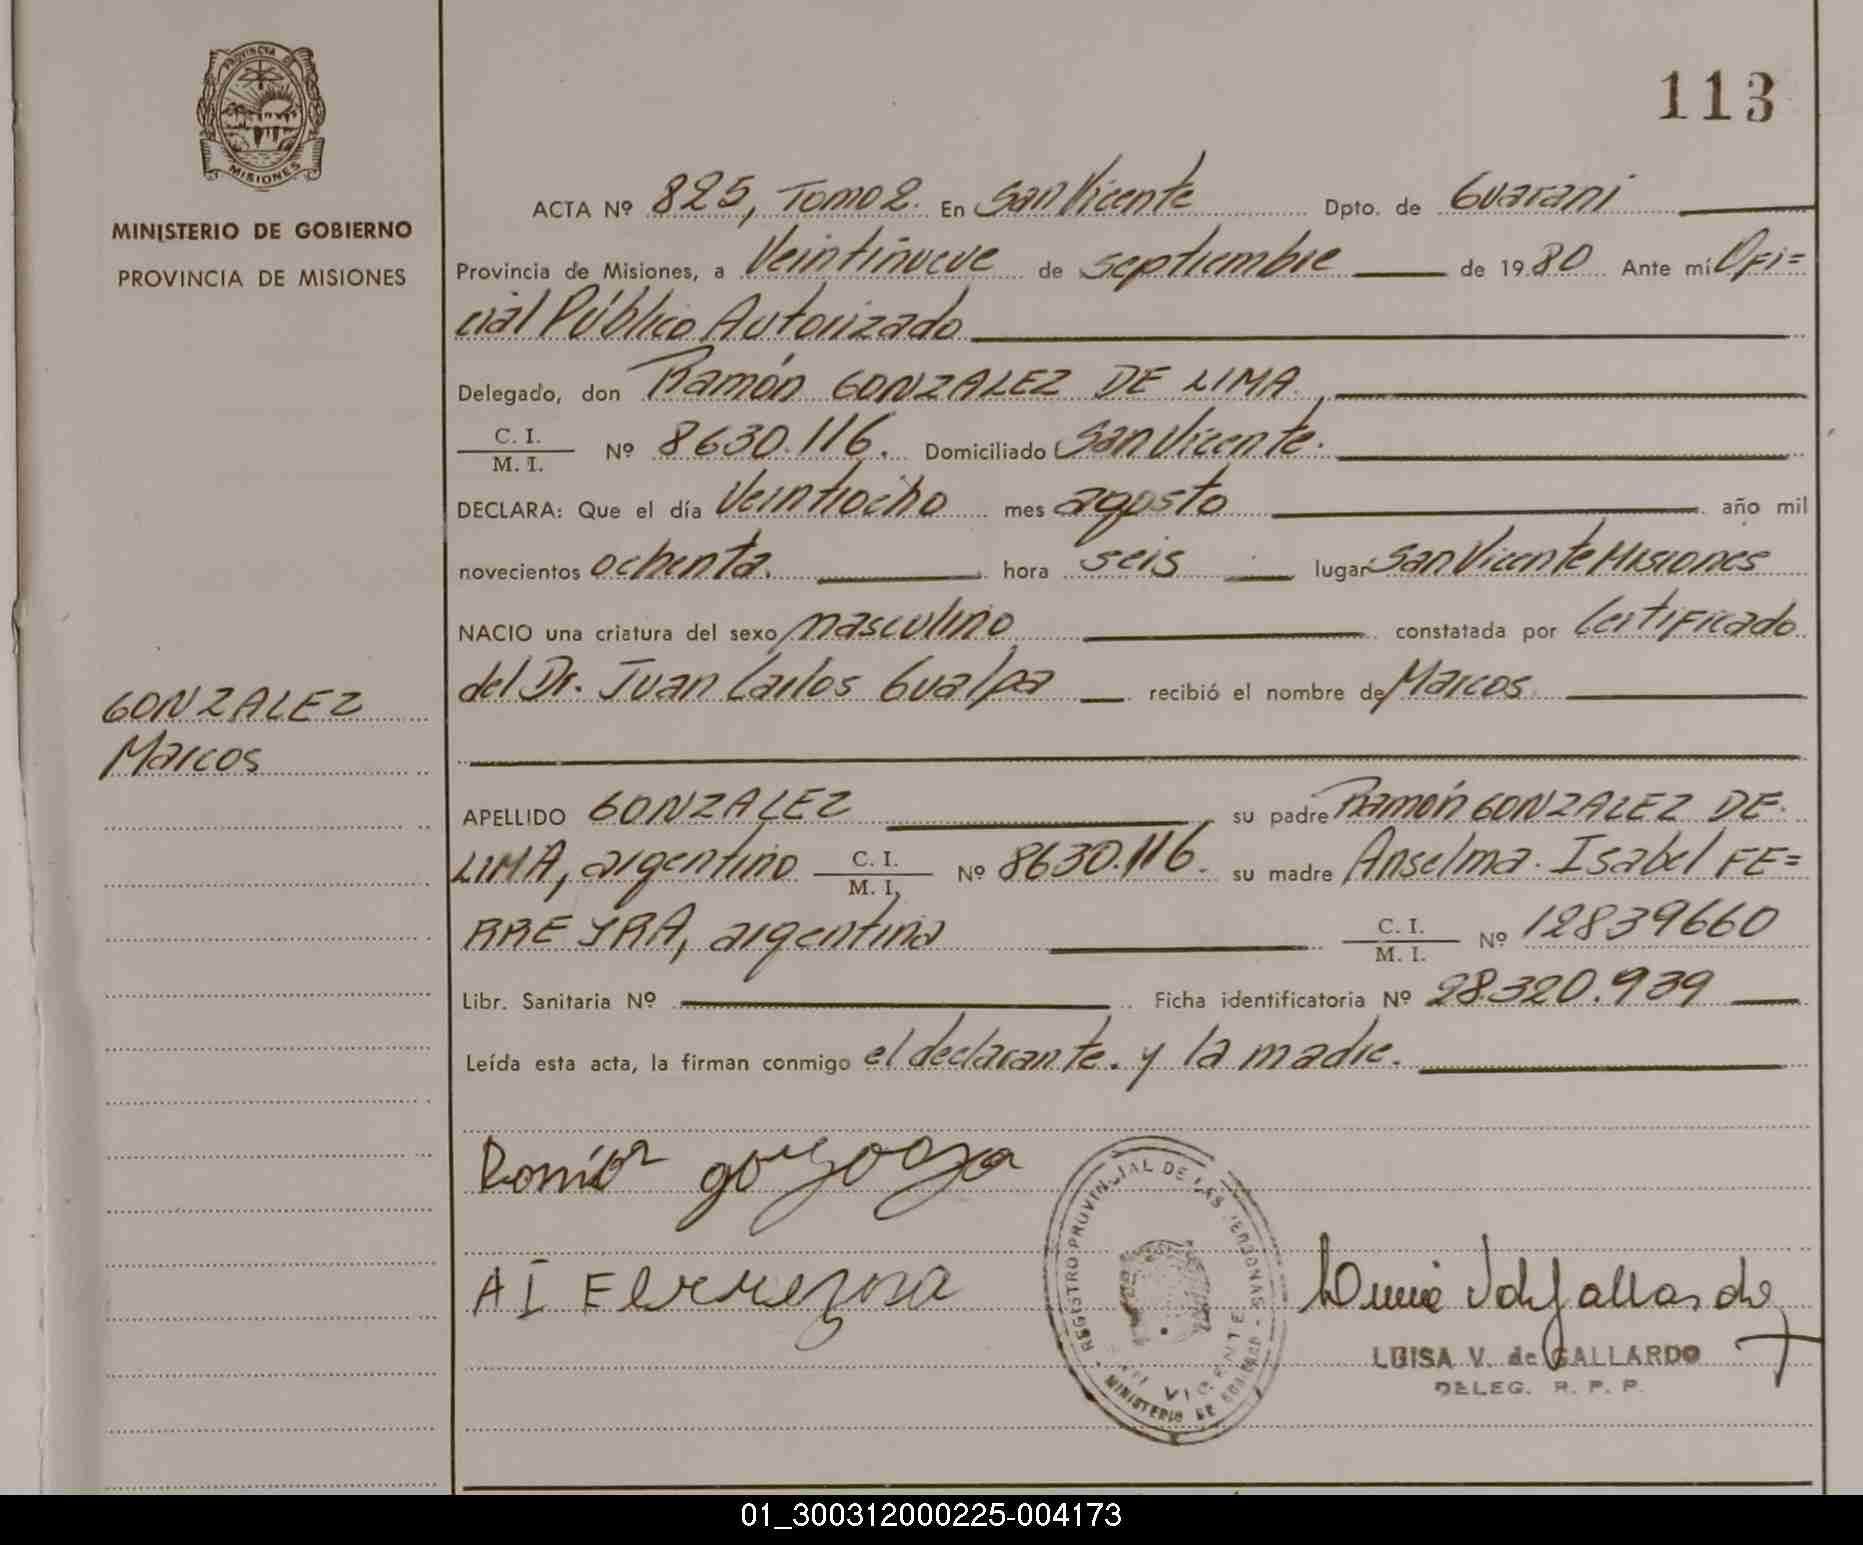 113
PROVINCIA DE
MISIONES
MINISTERIO DE GOBIERNO
PROVINCIA DE MISIONES
ACTA Nº 825, Tomo 2. En San Vicente Dpto. de Guaraní
Provincia de Misiones, a Veintinueve de septiembre de 1980 Ante mí Ofi=
cial Público Autorizado
Delegado, don Ramón GONZALEZ DE LIMA
C. I.
M. I. Nº 8630.116. Domiciliado San Vicente.
DECLARA: Que el día Veintiocho mes agosto año mil
novecientos ochenta. hora seis lugar San Vicente Misiones
NACIO una criatura del sexo masculino constatada por Certificado
del Dr. Juan Carlos Gualpa recibió el nombre de Marcos
GONZALEZ
Marcos
APELLIDO GONZALEZ su padre Ramón GONZALEZ DE
LIMA, argentino C. I. M. I. Nº 8630.116. su madre Anselma Isabel FE=
RREYRA, argentina C. I. M. I. Nº 12839660
Libr. Sanitaria Nº Ficha identificatoria Nº 28.320.939
Leída esta acta, la firman conmigo el declarante. y la madre.
A I
REGISTRO PROVINCIAL DE LAS PERSONAS
VICENTE
MINISTERIO DE
LUISA V. de GALLARDO
DELEG. R. P. P.
01_300312000225-004173